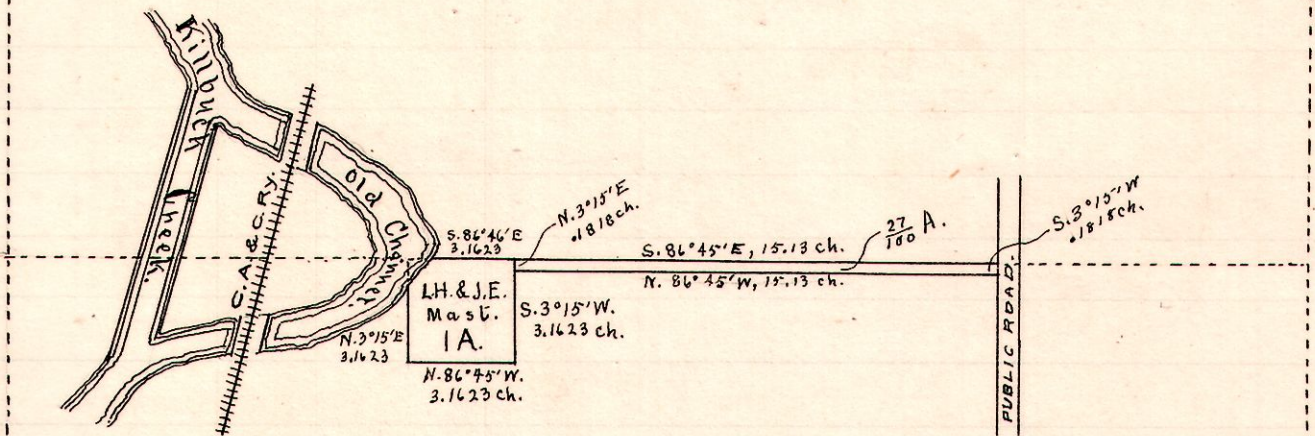 Killbuck
Creek.
C.A. & C. RY.
Old Channel
S. 86° 46' E
3.1623
N. 3° 15' E
.1818 ch.
S. 86° 45' E, 15.13 ch.
N. 86° 45' W, 15.13 ch.
27
100 A.
S. 3° 15' W
.1818 ch.
L.H. & J.E.
Mast.
1 A.
S. 3° 15' W.
3.1623 ch.
N. 3° 15' E
3.1623
N. 86° 45' W.
3.1623 ch.
PUBLIC ROAD.